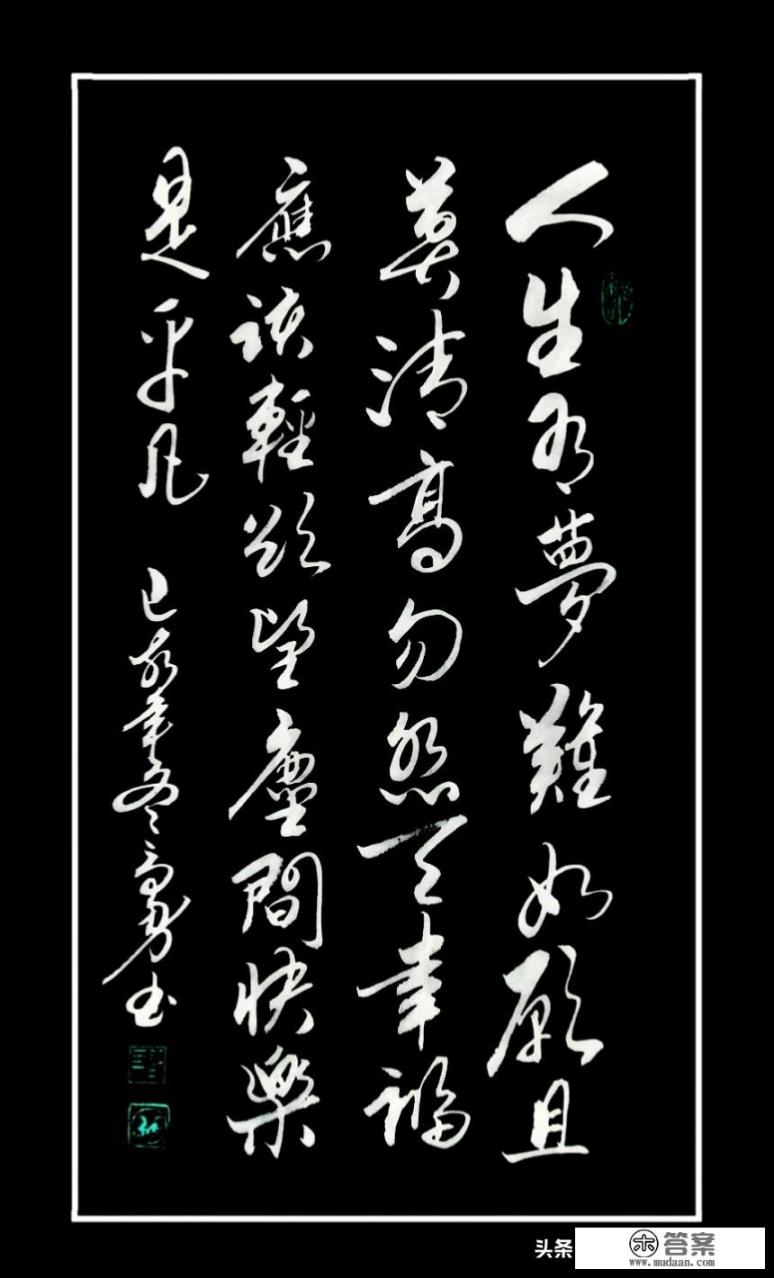 人生有夢難如願且
莫清高勿怨天幸福
應該輕欲望塵間快樂
是平凡
己亥年冬高勇书
头条
答案
www.mudaan.com